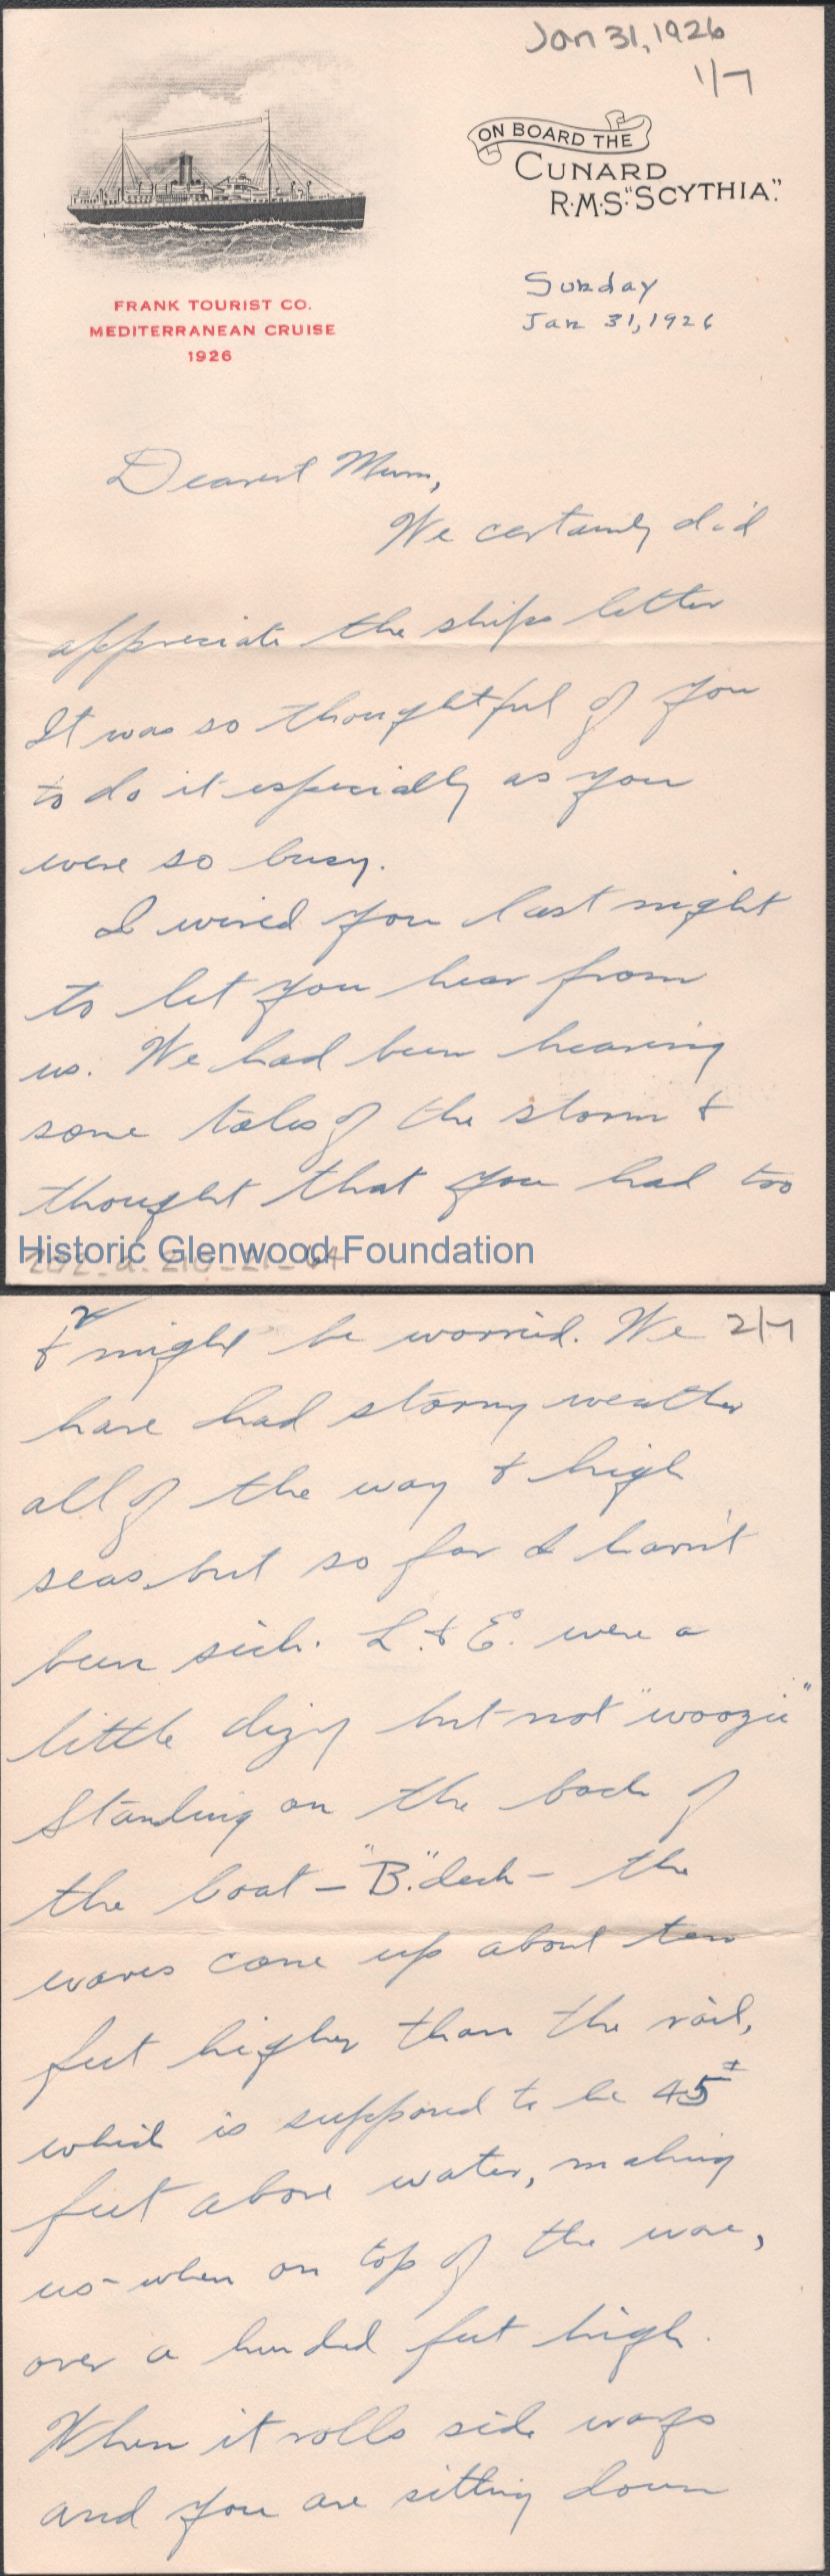 Jan 31, 1926
1/7
ON BOARD THE
CUNARD
R.M.S. "SCYTHIA."
FRANK TOURIST CO.
MEDITERRANEAN CRUISE
1926
Sunday
Jan 31, 1926
Dearest Mum,
We certainly did
appreciate the ships letter
It was so thoughtful of you
to do it especially as you
were so busy.
I wired you last night
to let you hear from
us. We had been hearing
some tales of the storm &
thought that you had too
Historic Glenwood Foundation
2
& might be worried. We 2/7
have had stormy weather
all of the way & high
seas, but so far I havn't
been sick. L. & E. were a
little dizy but not "woozie"
Standing on the back of
the boat – "B." deck – the
waves come up about ten
feet higher than the rail,
which is supposed to be 45±
feet above water, making
us – when on top of the wave,
over a hunded feet high.
When it rolls side ways
and you are sitting down